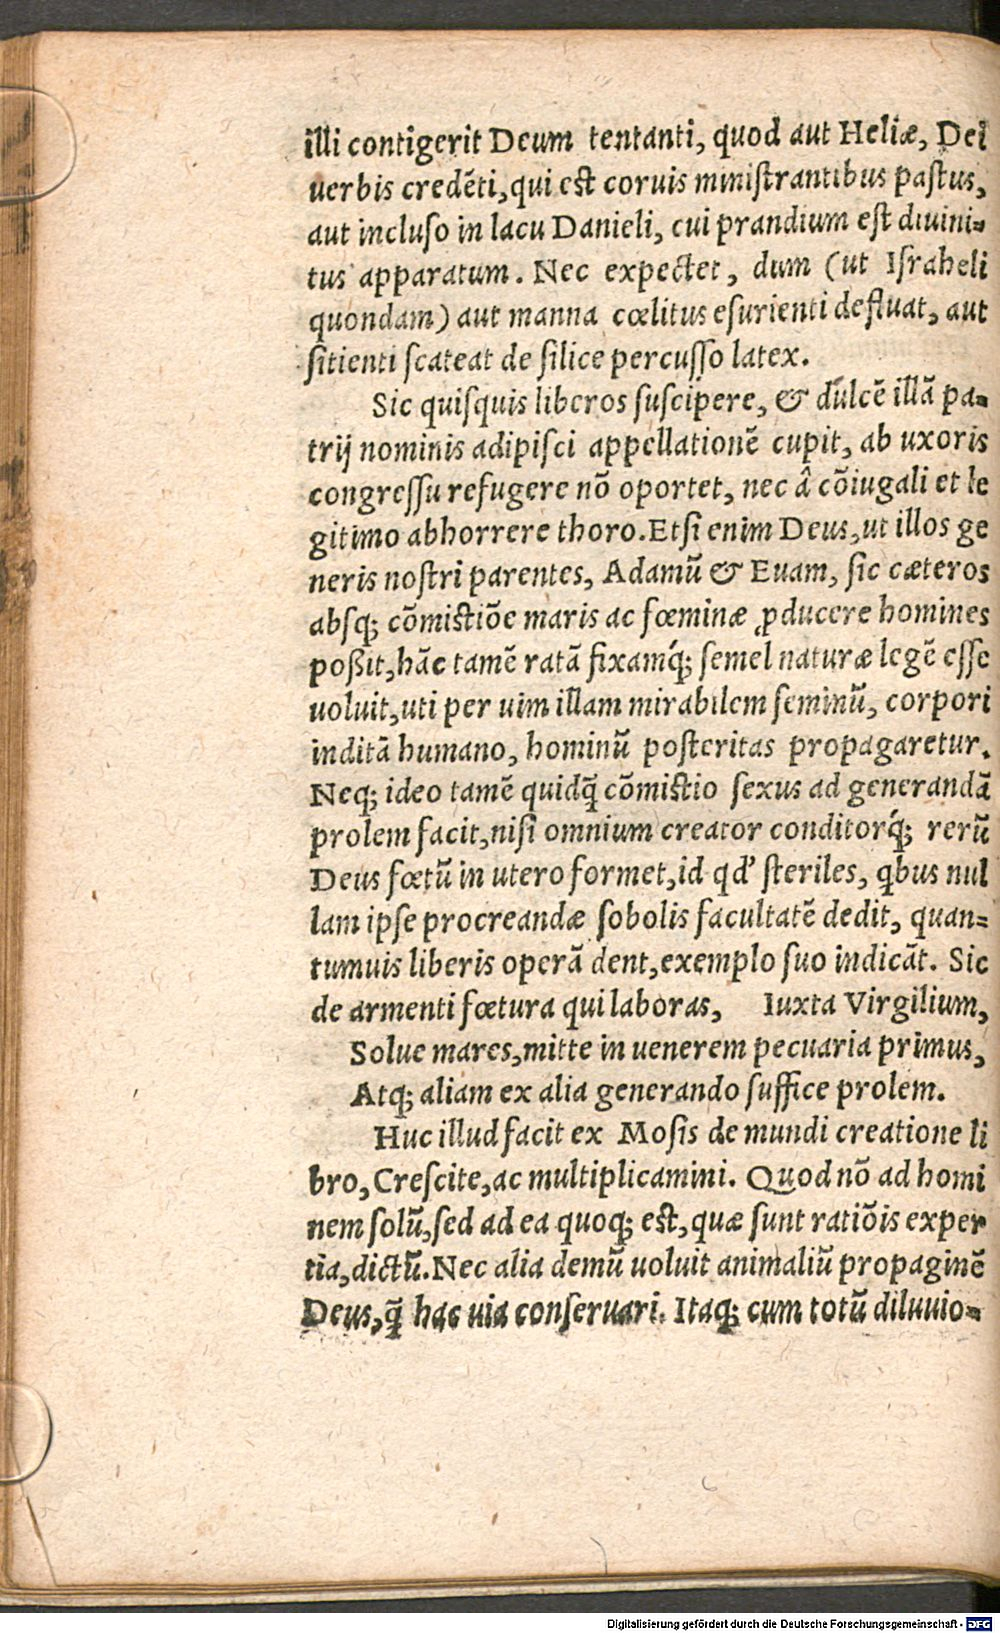 illi contigerit Deum tentanti, quod aut Heliæ, Dei
uerbis credẽti, qui est coruis miniſtrantibus paſtus,
aut incluſo in lacu Danieli, cui prandium eſt diuini=
tus apparatum. Nec expectet, dum (ut Iſraheli
quondam) aut manna cœlitus eſurienti defluat, aut
ſitienti ſcateat de ſilice percuſſo latex.
Sic quiſquis liberos ſuſcipere, & dulcẽ illã pa=
trij nominis adipiſci appellationẽ cupit, ab uxoris
congreſſu refugere nõ oportet, nec â cõiugali et le
gitimo abhorrere thoro. Etſi enim Deus, ut illos ge
neris noſtri parentes, Adamũ & Euam, ſic cæteros
abſq; cõmictiõe maris ac fœminæ ꝓducere homines
poßit, hãc tamẽ ratã fixamq́; ſemel naturæ legẽ eſſe
uoluit, uti per uim illam mirabilem ſeminũ, corpori
inditã humano, hominũ poſteritas propagaretur.
Neq; ideo tamẽ quidq̃ cõmictio ſexus ad generandã
prolem facit, niſi omnium creator conditorq́; rerũ
Deus fœtũ in utero formet, id qd' ſteriles, qbus nul
lam ipſe procreandæ ſobolis facultatẽ dedit, quan=
tumuis liberis operã dent, exemplo ſuo indicãt. Sic
de armenti fœtura qui laboras, Iuxta Virgilium,
Solue mares, mitte in uenerem pecuaria primus,
Atq; aliam ex alia generando ſuffice prolem.
Huc illud facit ex Moſis de mundi creatione li
bro, Creſcite, ac multiplicamini. Quod nõ ad homi
nem ſolũ, ſed ad ea quoq; eſt, quæ ſunt ratiõis exper
tia, dictũ. Nec alia demũ uoluit animaliũ propaginẽ
Deus, q̃ hac uia conſeruari. Itaq; cum totũ diluuio=
Digitalisierung gefördert durch die Deutsche Forschungsgemeinschaft - DFG